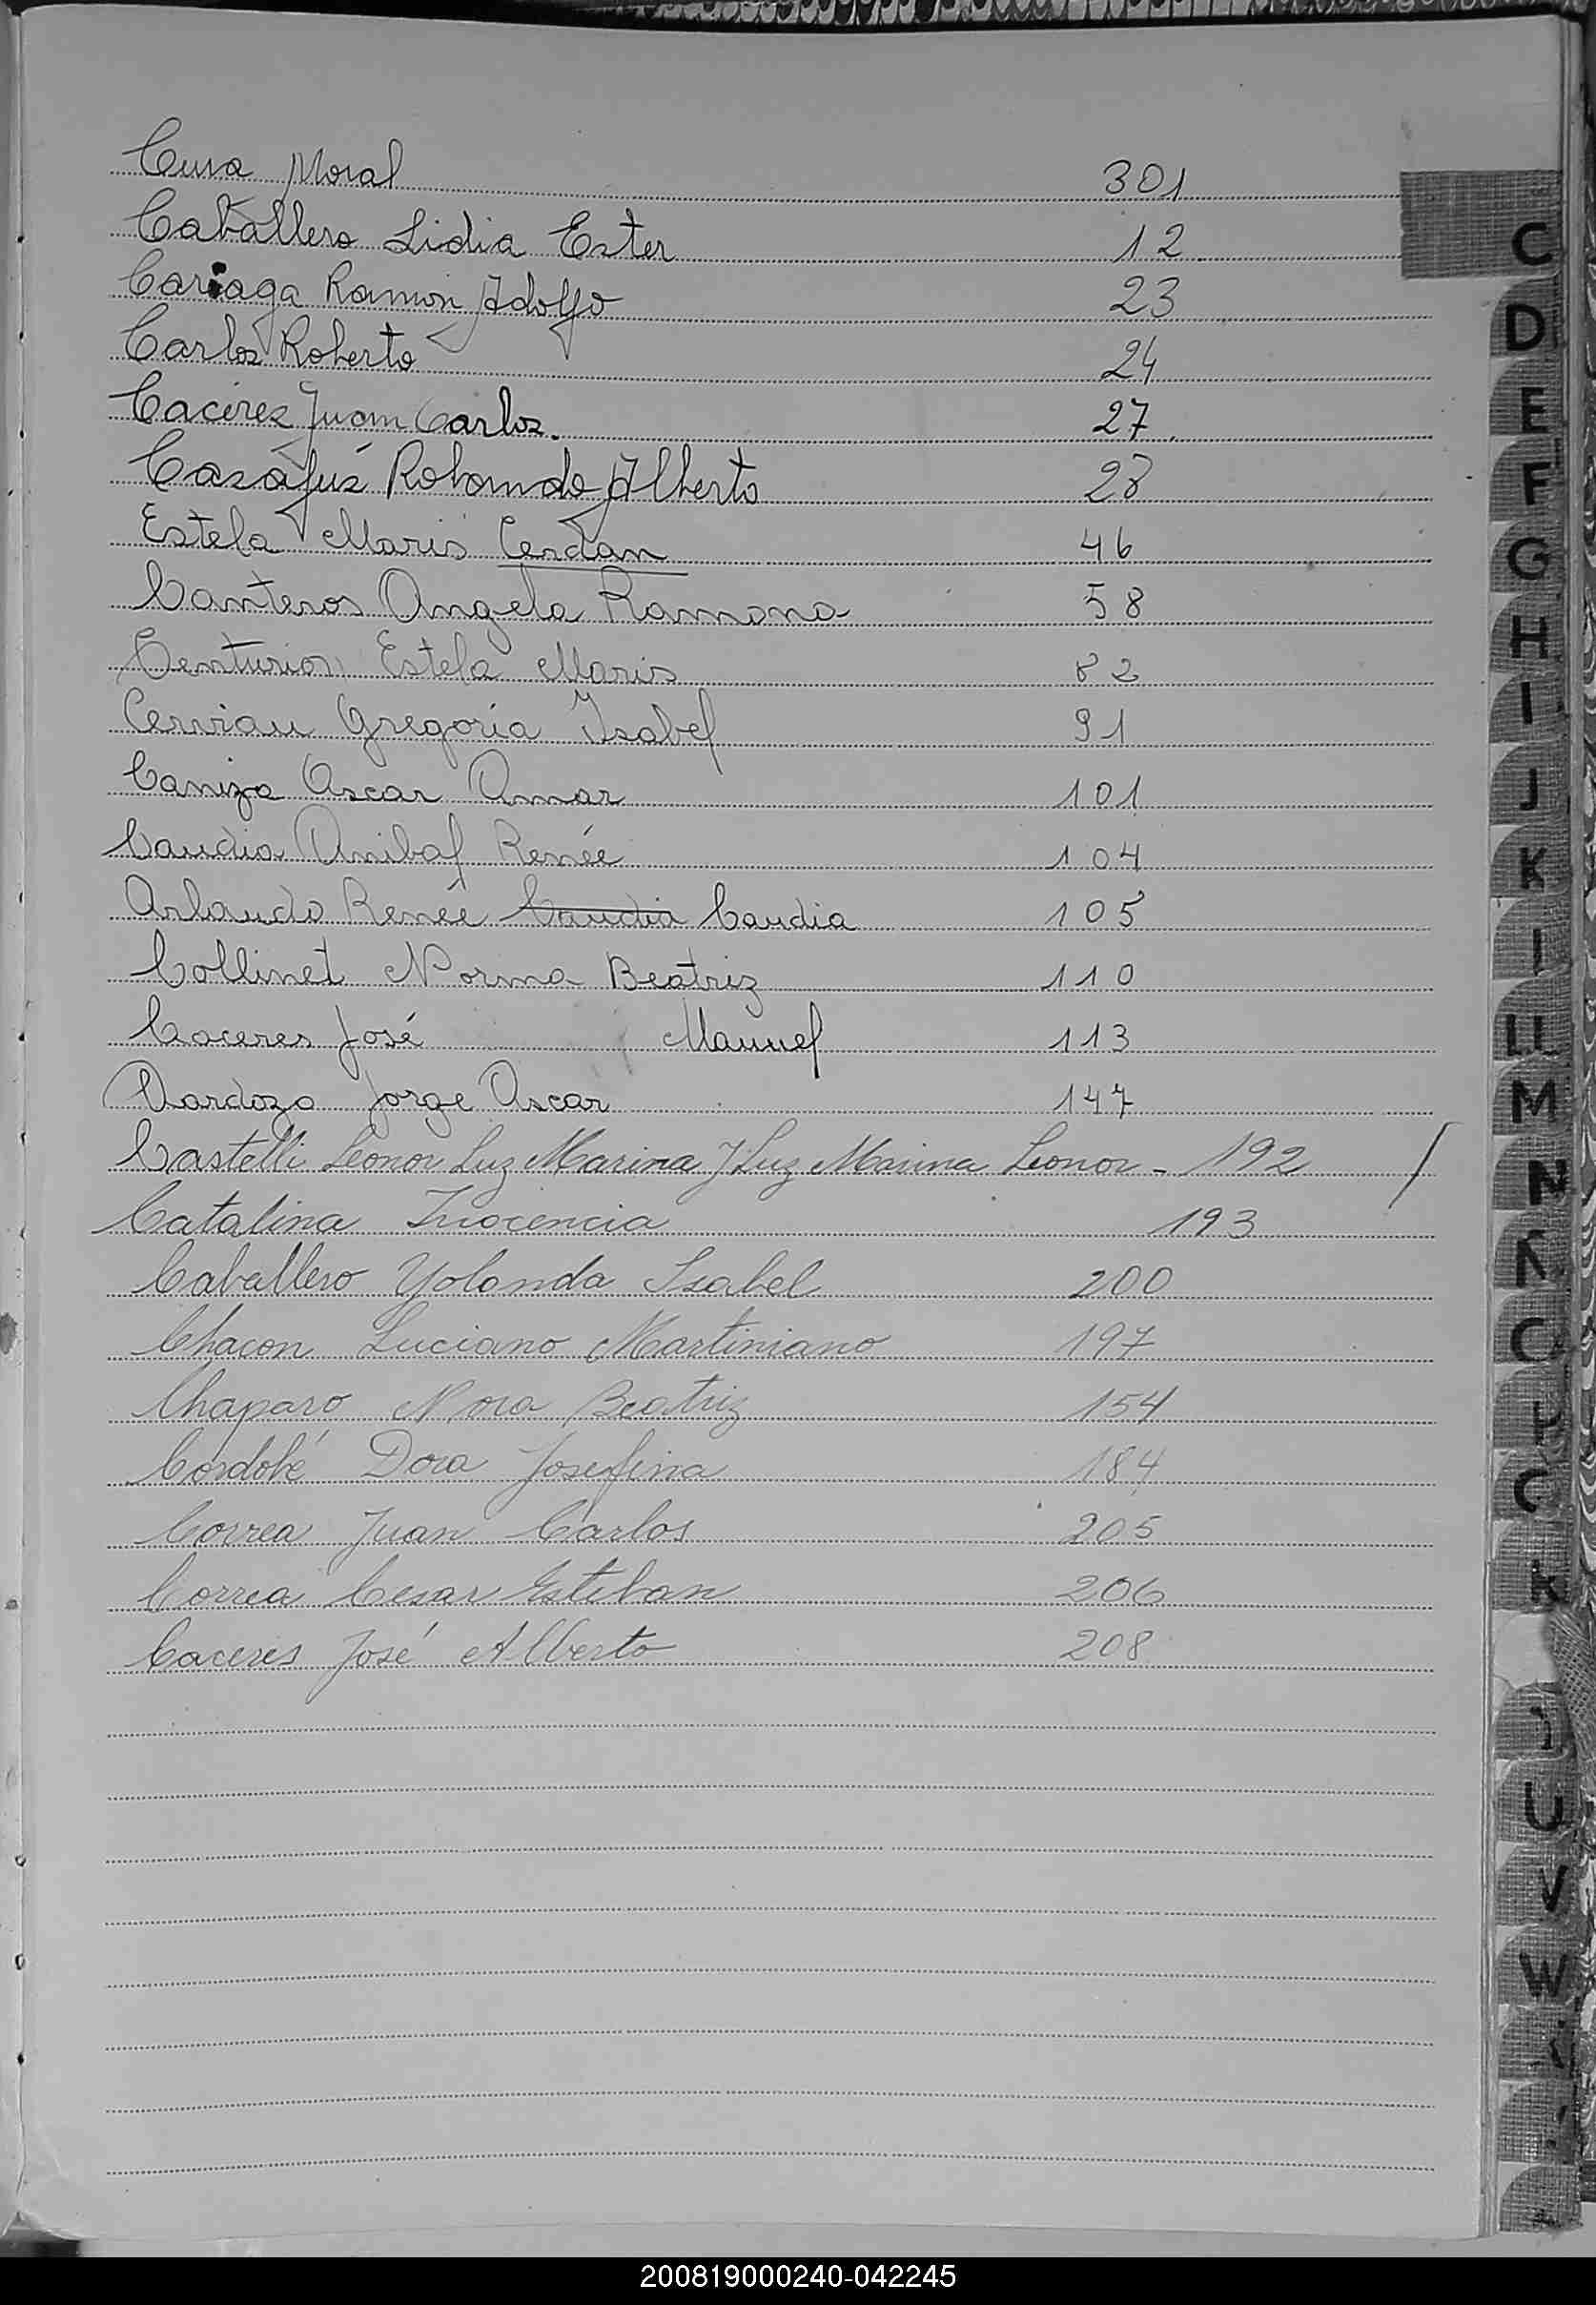 Cura Moral 301
Caballero Lidia Ester 12
Cariaga Ramon Adolfo 23
Carlos Roberto 24
Caceres Juan Carlos. 27
Casafús Rolando Alberto 28
Estela Maris Cerdan 46
Canteros Angela Ramona 58
Centurion Estela Maris 82
Cerviau Gregoria Isabel 91
Caniza Oscar Omar 101
Caudia Anibal Renée 104
Orlando Renée Caudia Caudia 105
Collinet Norma Beatriz 110
Caceres José Manuel 113
Cardozo Jorge Oscar 147
Castelli Leonor Luz Marina J Luz Marina Leonor - 192 /
Catalina Inocencia 193
Caballero Yolanda Isabel 200
Chacon Luciano Martiniano 197
Chaparo Nora Beatriz 154
Cordobé Dora Josefina 184
Correa Juan Carlos 205
Correa Cesar Esteban 206
Caceres José Alberto 208
C
D
E
F
G
H
I
J
K
L
LL
M
N
Ñ
O
P
Q
R
U
V
W
200819000240-042245